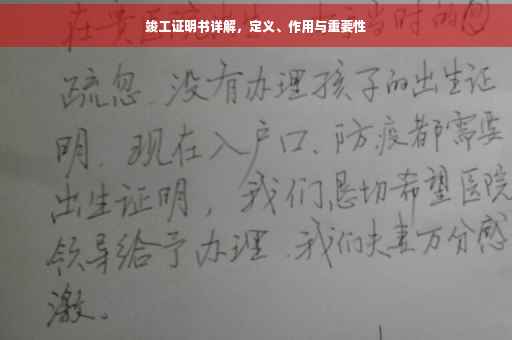 竣工证明书详解，定义、作用与重要性
在贵医院出生，当时的
疏忽、没有办理孩子的出生证
明、现在入户口、防疫都需要
出生证明，我们恳切希望医院
领导给予办理、我们夫妻万分感
激。